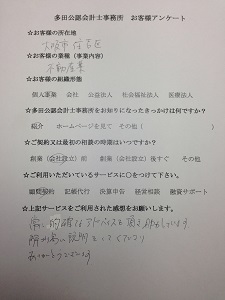 多田公認会計士事務所 お客様アンケート
☆お客様の所在地
大阪市住吉区
☆お客様の業種(事業内容)
不動産業
☆お客様の組織形態
個人事業 会社 公益法人 社会福祉法人 医療法人
☆多田公認会計士事務所をお知りになったきっかけは何ですか?
紹介 ホームページを見て その他( )
☆ご契約又は最初の相談の時期はいつですか?
創業(会社設立)前 創業(会社設立)後すぐ その他
☆ご利用いただいているサービスに○をつけて下さい。
顧問契約 記帳代行 決算申告 経営相談 融資サポート
☆上記サービスをご利用された感想をお願いします。
常に的確なアドバイスを頂き
説明をしてくださり
ありがとうございます